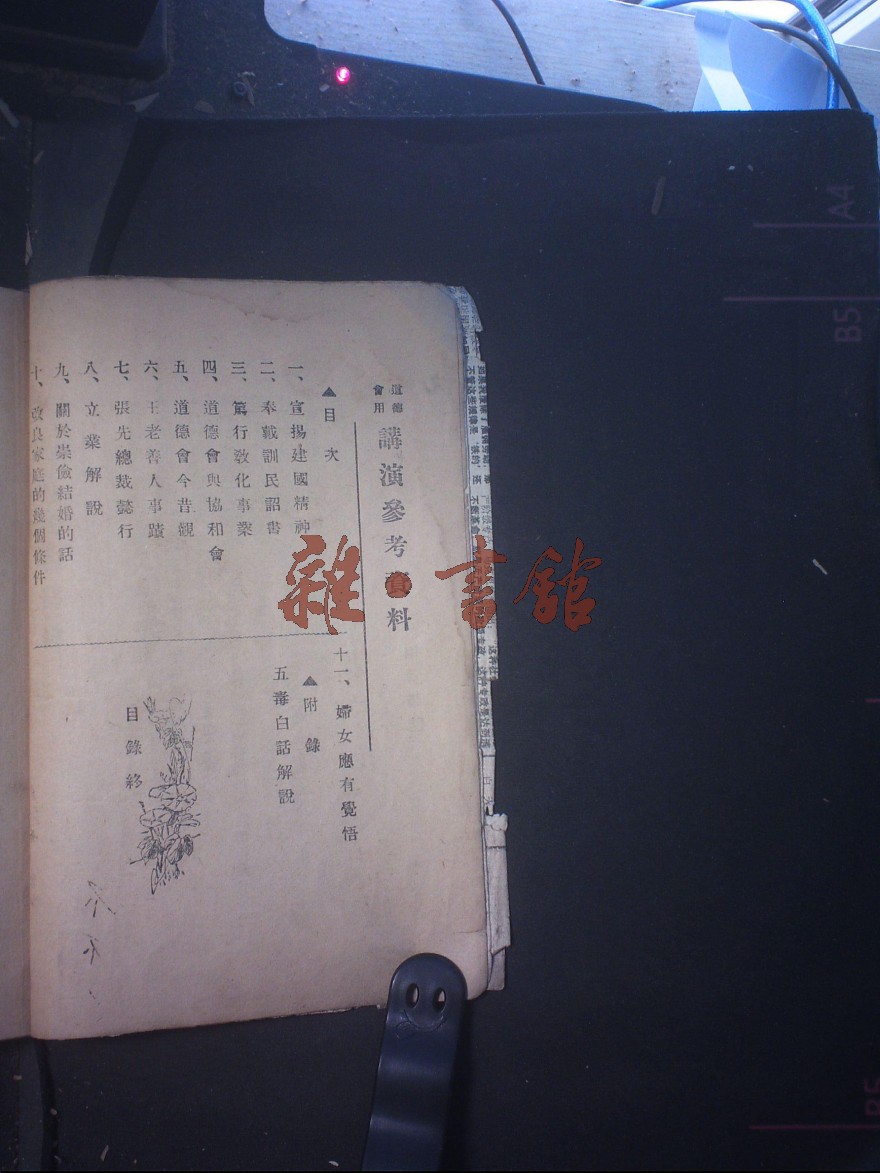 道德
會用
講演參考資料
▲目次
一、宣揚建國精神
二、奉戴訓民詔書
三、篤行敎化事業
四、道德會與協和會
五、道德會今昔觀
六、王老善人事蹟
七、張先總裁懿行
八、立業解說
九、關於崇儉結婚的話
十、改良家庭的幾個條件
十一、婦女應有覺悟
▲附錄
五毒白話解說
目錄終
雜·書館
A4
B5
B5